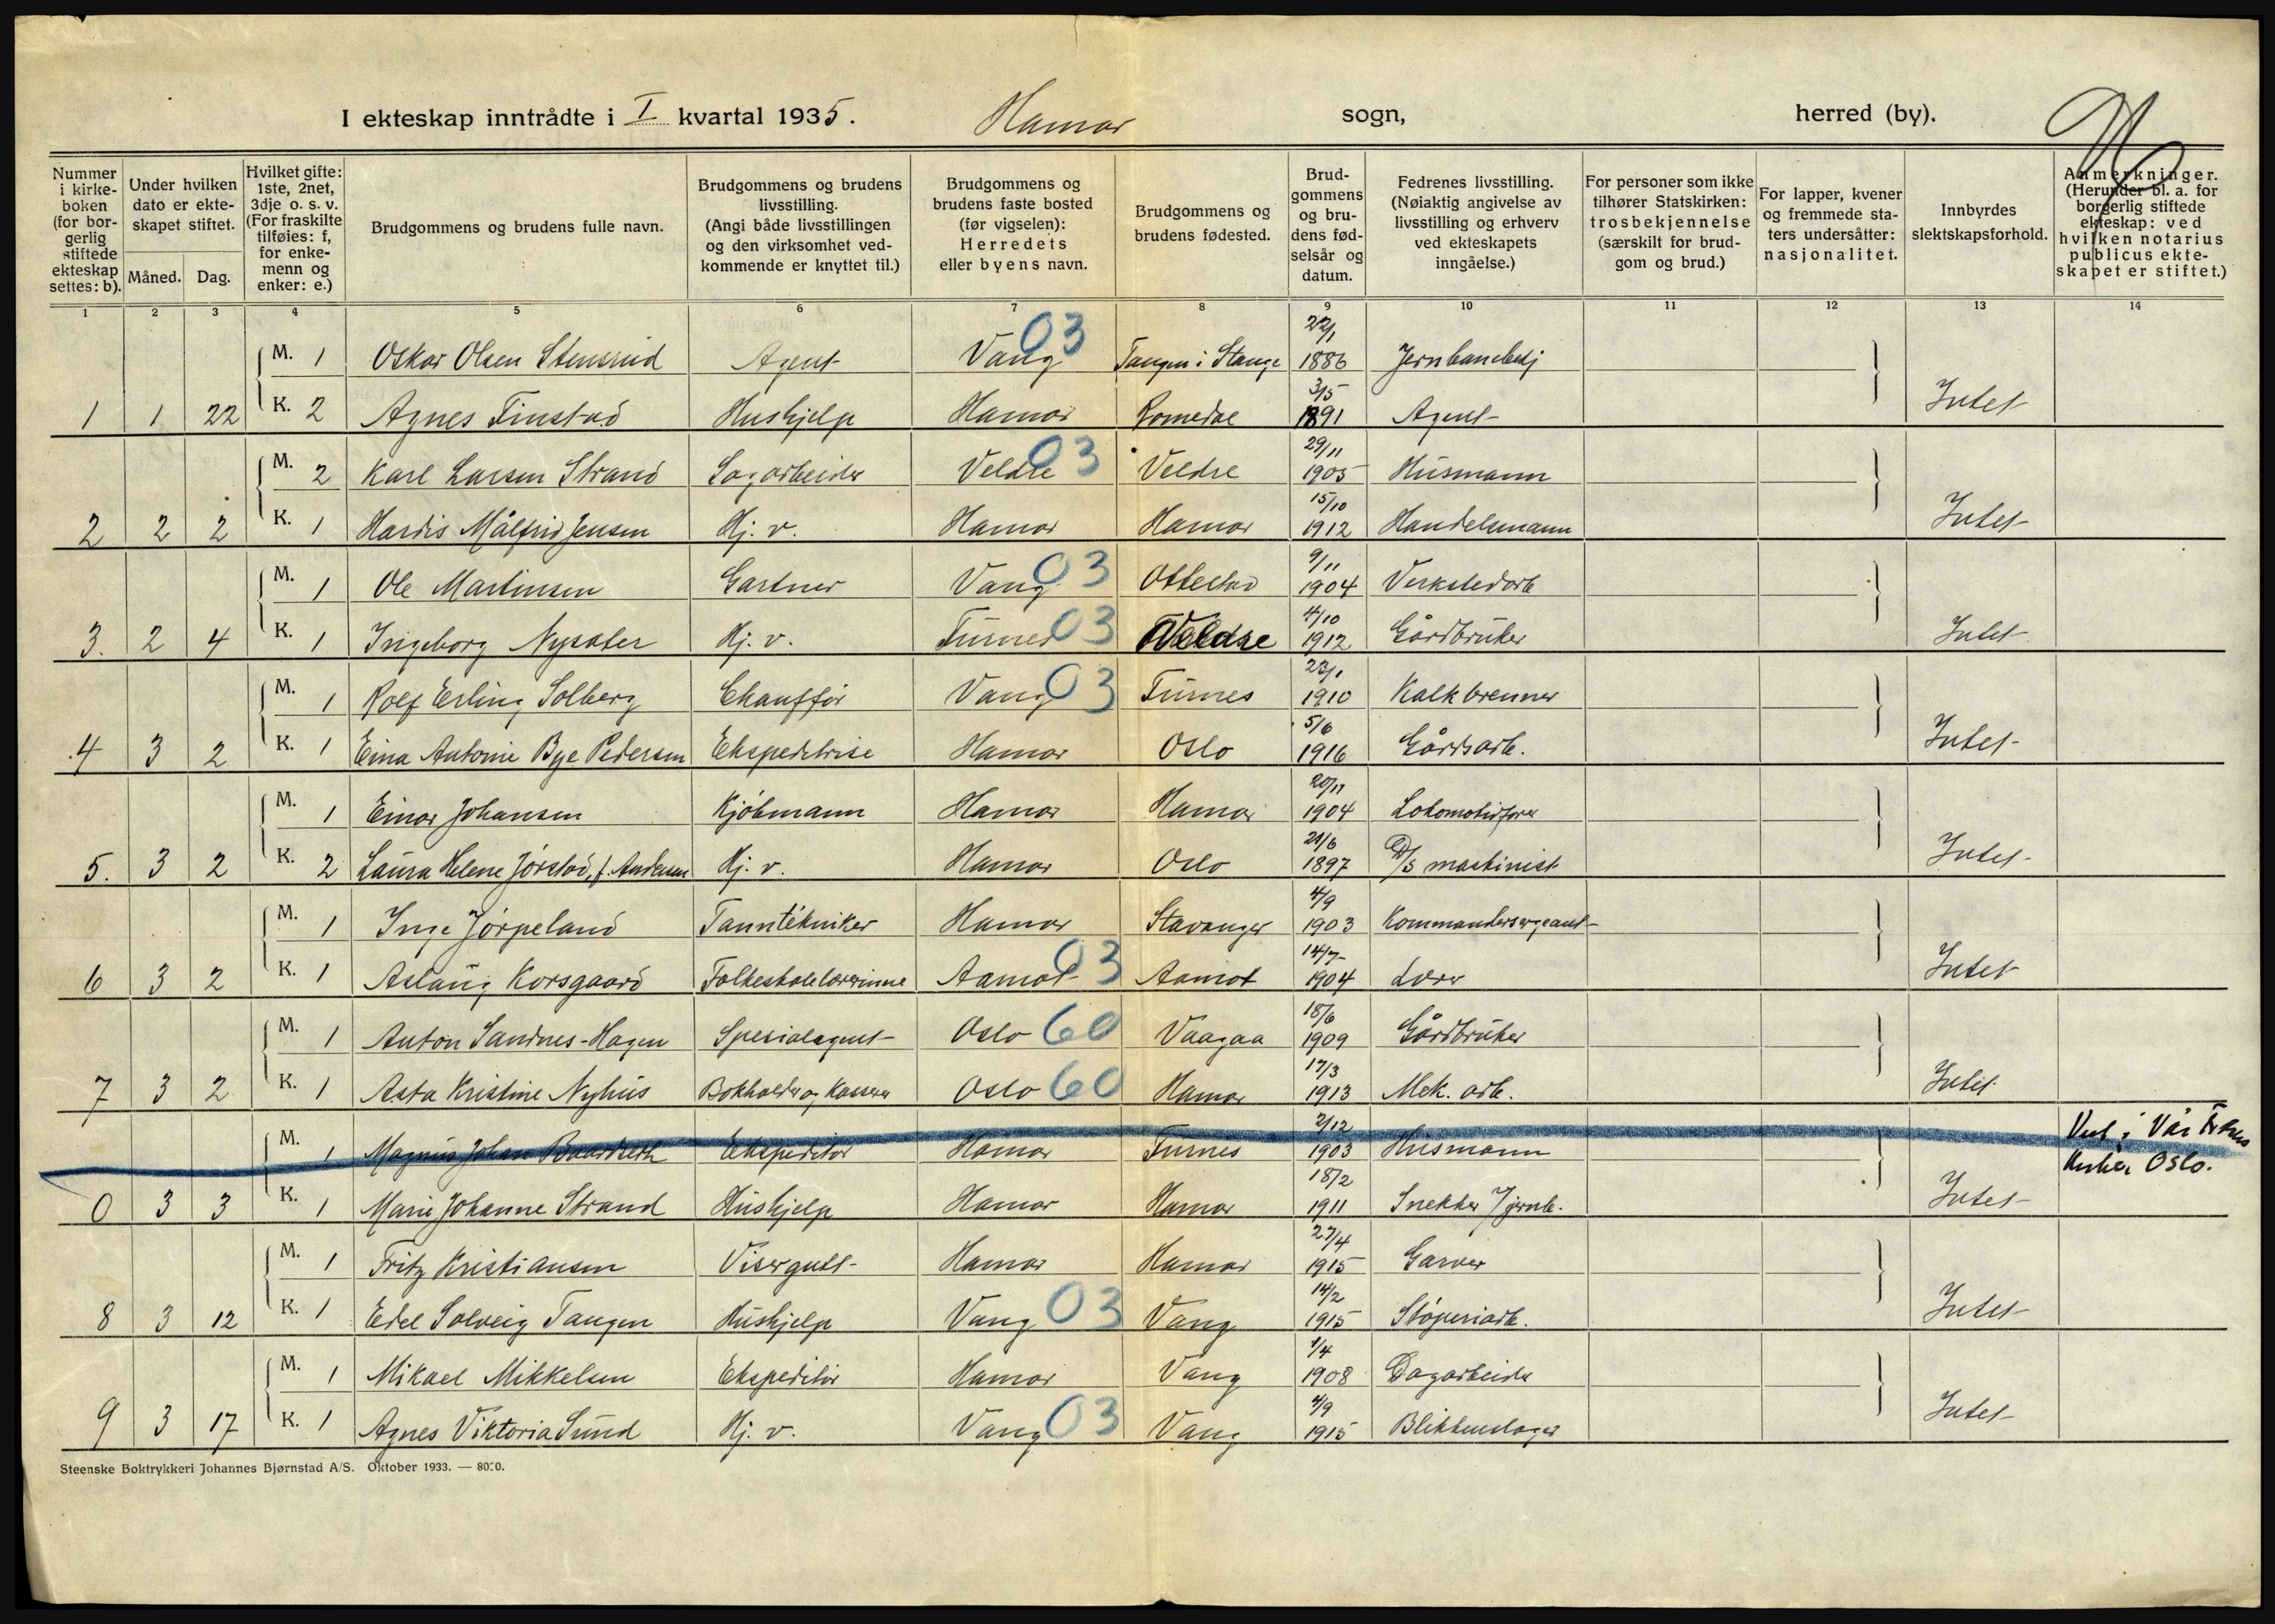 I ekteskap inntrådte i I kvartal 1935. Hamar sogn, herred (by).
Nummer i kirke- boken (for bor- gerlig stiftede ekteskap settes: b).
Under hvilken dato er ekte- skapet stiftet.
Måned. Dag.
Hvilket gifte: 1ste, 2net, 3dje o. s. v. (For fraskilte tilføies: f, for enke- menn og enker: e.)
Brudgommens og brudens fulle navn.
Brudgommens og brudens livsstilling. (Angi både livsstillingen og den virksomhet ved- kommende er knyttet til.)
Brudgommens og brudens faste bosted (før vigselen): Herredets eller byens navn.
Brudgommens og brudens fødested.
Brud- gommens og bru- dens fød- selsår og datum.
Fedrenes livsstilling. (Nøiaktig angivelse av livsstilling og erhverv ved ekteskapets inngåelse.)
For personer som ikke tilhører Statskirken: trosbekjennelse (særskilt for brud- gom og brud.)
For lapper, kvener og fremmede sta- ters undersåtter: nasjonalitet.
Innbyrdes slektskapsforhold.
Anmerkninger. (Herunder bl. a. for borgerlig stiftede ekteskap: ved hvilken notarius publicus ekte- skapet er stiftet.)
1 2 3 4 5 6 7 8 9 10 11 12 13 14
M. 1 Oskar Olsen Stensrud Agent Vang 03 Tangen i Stange 22/1 1886 Jernbanebetj
1 1 22 K. 2 Agnes Finstad Hushjelp Hamar Romedal 3/5 1891 Agent Intet
M. 2 Karl Larsen Strand Sagarbeider Veldre 03 Veldre 29/11 1905 Husmann
2 2 2 K. 1 Hardis Målfrid Jensen Hj. v. Hamar Hamar 15/10 1912 Handelsmann Intet
M. 1 Ole Martinsen Gartner Vang 03 Ottestad 9/11 1904 Verkstedarb
3. 2 4 K. 1 Ingeborg Nysæter Hj. v. Furnes 03 Veldre 4/10 1912 Gårdbruker Intet
M. 1 Rolf Erling Solberg Chauffør Vang 03 Furnes 23/1 1910 Kalkbrenner
4 3 2 K. 1 Eina Antonie Bye Pedersen Ekspeditrise Hamar Oslo 5/6 1916 Gårdsarb. Intet
M. 1 Einar Johansen Kjøbmann Hamar Hamar 20/11 1904 Lokomotivfører
5. 3 2 K. 2 Laura Helene Jørstad, f. Andersen Hj. v. Hamar Oslo 21/6 1897 D/S maskinist Intet
M. 1 Inge Jørpeland Tanntekniker Hamar Stavanger 4/9 1903 Kommandersergeant
6 3 2 K. 1 Aslaug Korsgaard Folkeskolelærerinne Aamot 03 Aamot 14/7 1904 Lærer Intet
M. 1 Anton Sandnes-Hagen Spesialagent Oslo 60 Vaagaa 18/6 1909 Gårdbruker
7 3 2 K. 1 Asta Kristine Nyhus Bokholder og Kasserer Oslo 60 Hamar 17/3 1913 Mek. arb. Intet
M. 1 Magnus Johan Baardseth Ekspeditør Hamar Furnes 2/12 1903 Husmann Viet i Vår Frelsers
0 3 3 K. 1 Marie Johanne Strand Hushjelp Hamar Hamar 18/2 1911 Snekker v/jernb. Intet Kirke, Oslo.
M. 1 Fritz Kristiansen Visergutt Hamar Hamar 27/4 1915 Garver
8 3 12 K. 1 Edel Solveig Tangen Hushjelp Vang 03 Vang 14/2 1915 Støperiarb. Intet
M. 1 Mikael Mikkelsen Ekspeditør Hamar Vang 1/4 1908 Dagarbeider
9 3 17 K. 1 Agnes Viktoria Sund Hj. v. Vang 03 Vang 4/9 1915 Blikkenslager Intet
Steenske Boktrykkeri Johannes Bjørnstad A/S. Oktober 1933. — 8000.